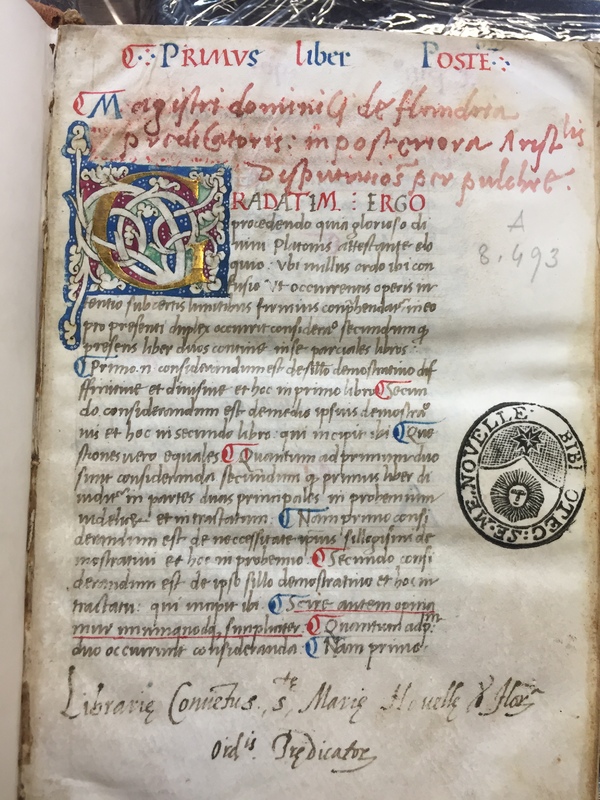 PRIMVS liber POSTE
Magistri dominici de flandria
predicatoris: in posteriora Arist lis
Disputatiões per pulchre.
GRADATIM : ERGO
procedendo quia glorioso di
uini Platonis attestante elo
quio: Vbi nullus ordo ibi con
fusio Vt occurrens operis in
tentio sub certis limitibus firmius
pro presenti duplex occurrit secundum q
presens liber duos continet in se parciales libros:
Primo.n considerandum est de sillo demostratiuo dif
finitiue et diuisiue et hoc in primo libro Secun
do considerandum est de medio ipsius demostra
nis et hoc in secundo libro: qui incipit ibi Que
stiones uero equales Quantum ad primum duo
sunt consideranda secundum q primus liber di
in partes duas principales in prohemium
uidelicet et in tractatum. Nam primo consi
derandum est de neccessitate ipius sillogismi de
mostratiui et hoc in prohemio. Secundo consi
derandum est de ipso sillo demostratiuo et hoc in
tractatu: qui incipit ibi. Scire autem opina
mur unumquodq simpliciter. Quantum ad pm
duo occurrunt consideranda: Nam primo
A
8.493
S:ME.NOVELLE: BIBLIOTEC:
Librarię Conuẽtus. s.te Marię Nouellę Flor.
Ord.is Prędicator.